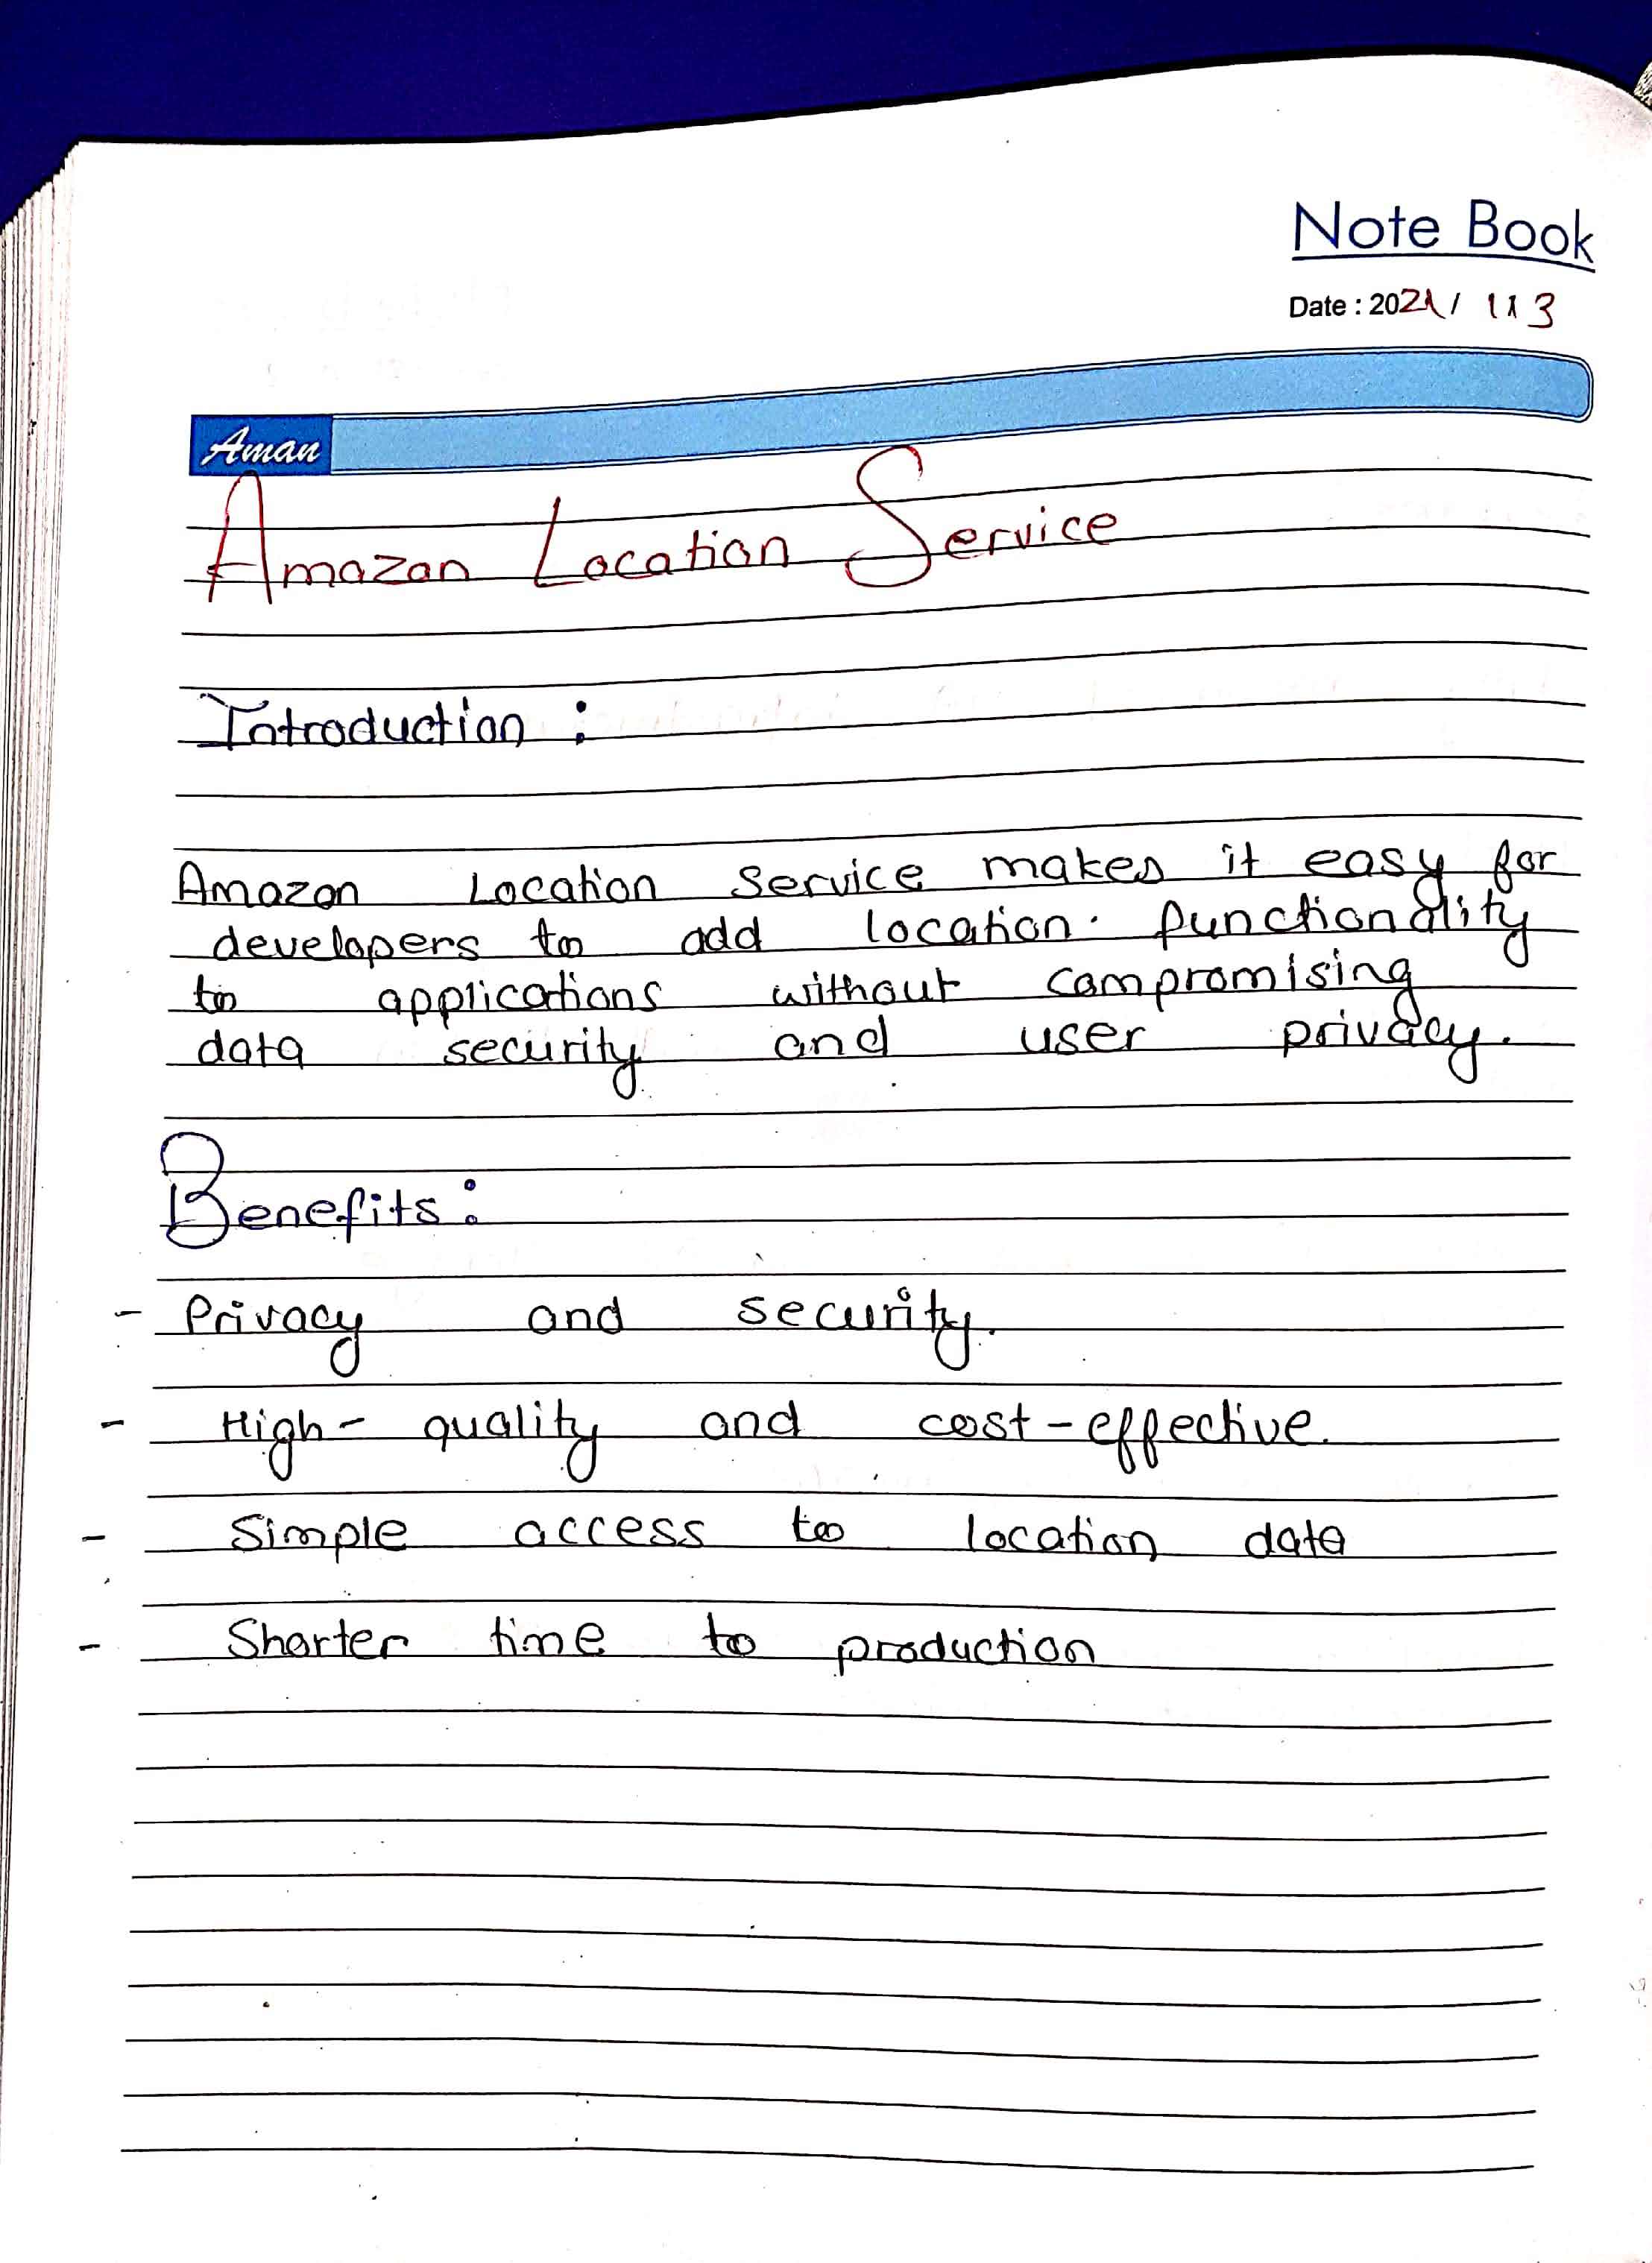 Note Book
Date : 2021/ 1/13
Aman
Amazon Location Service
Introduction :
Amazon Location Service makes it easy for
developers to add location functionality
to applications without compromising
data security and user privacy.
Benefits :
- Privacy and security.
- High- quality and cost-effective.
- Simple access to location data
- Shorter time to production